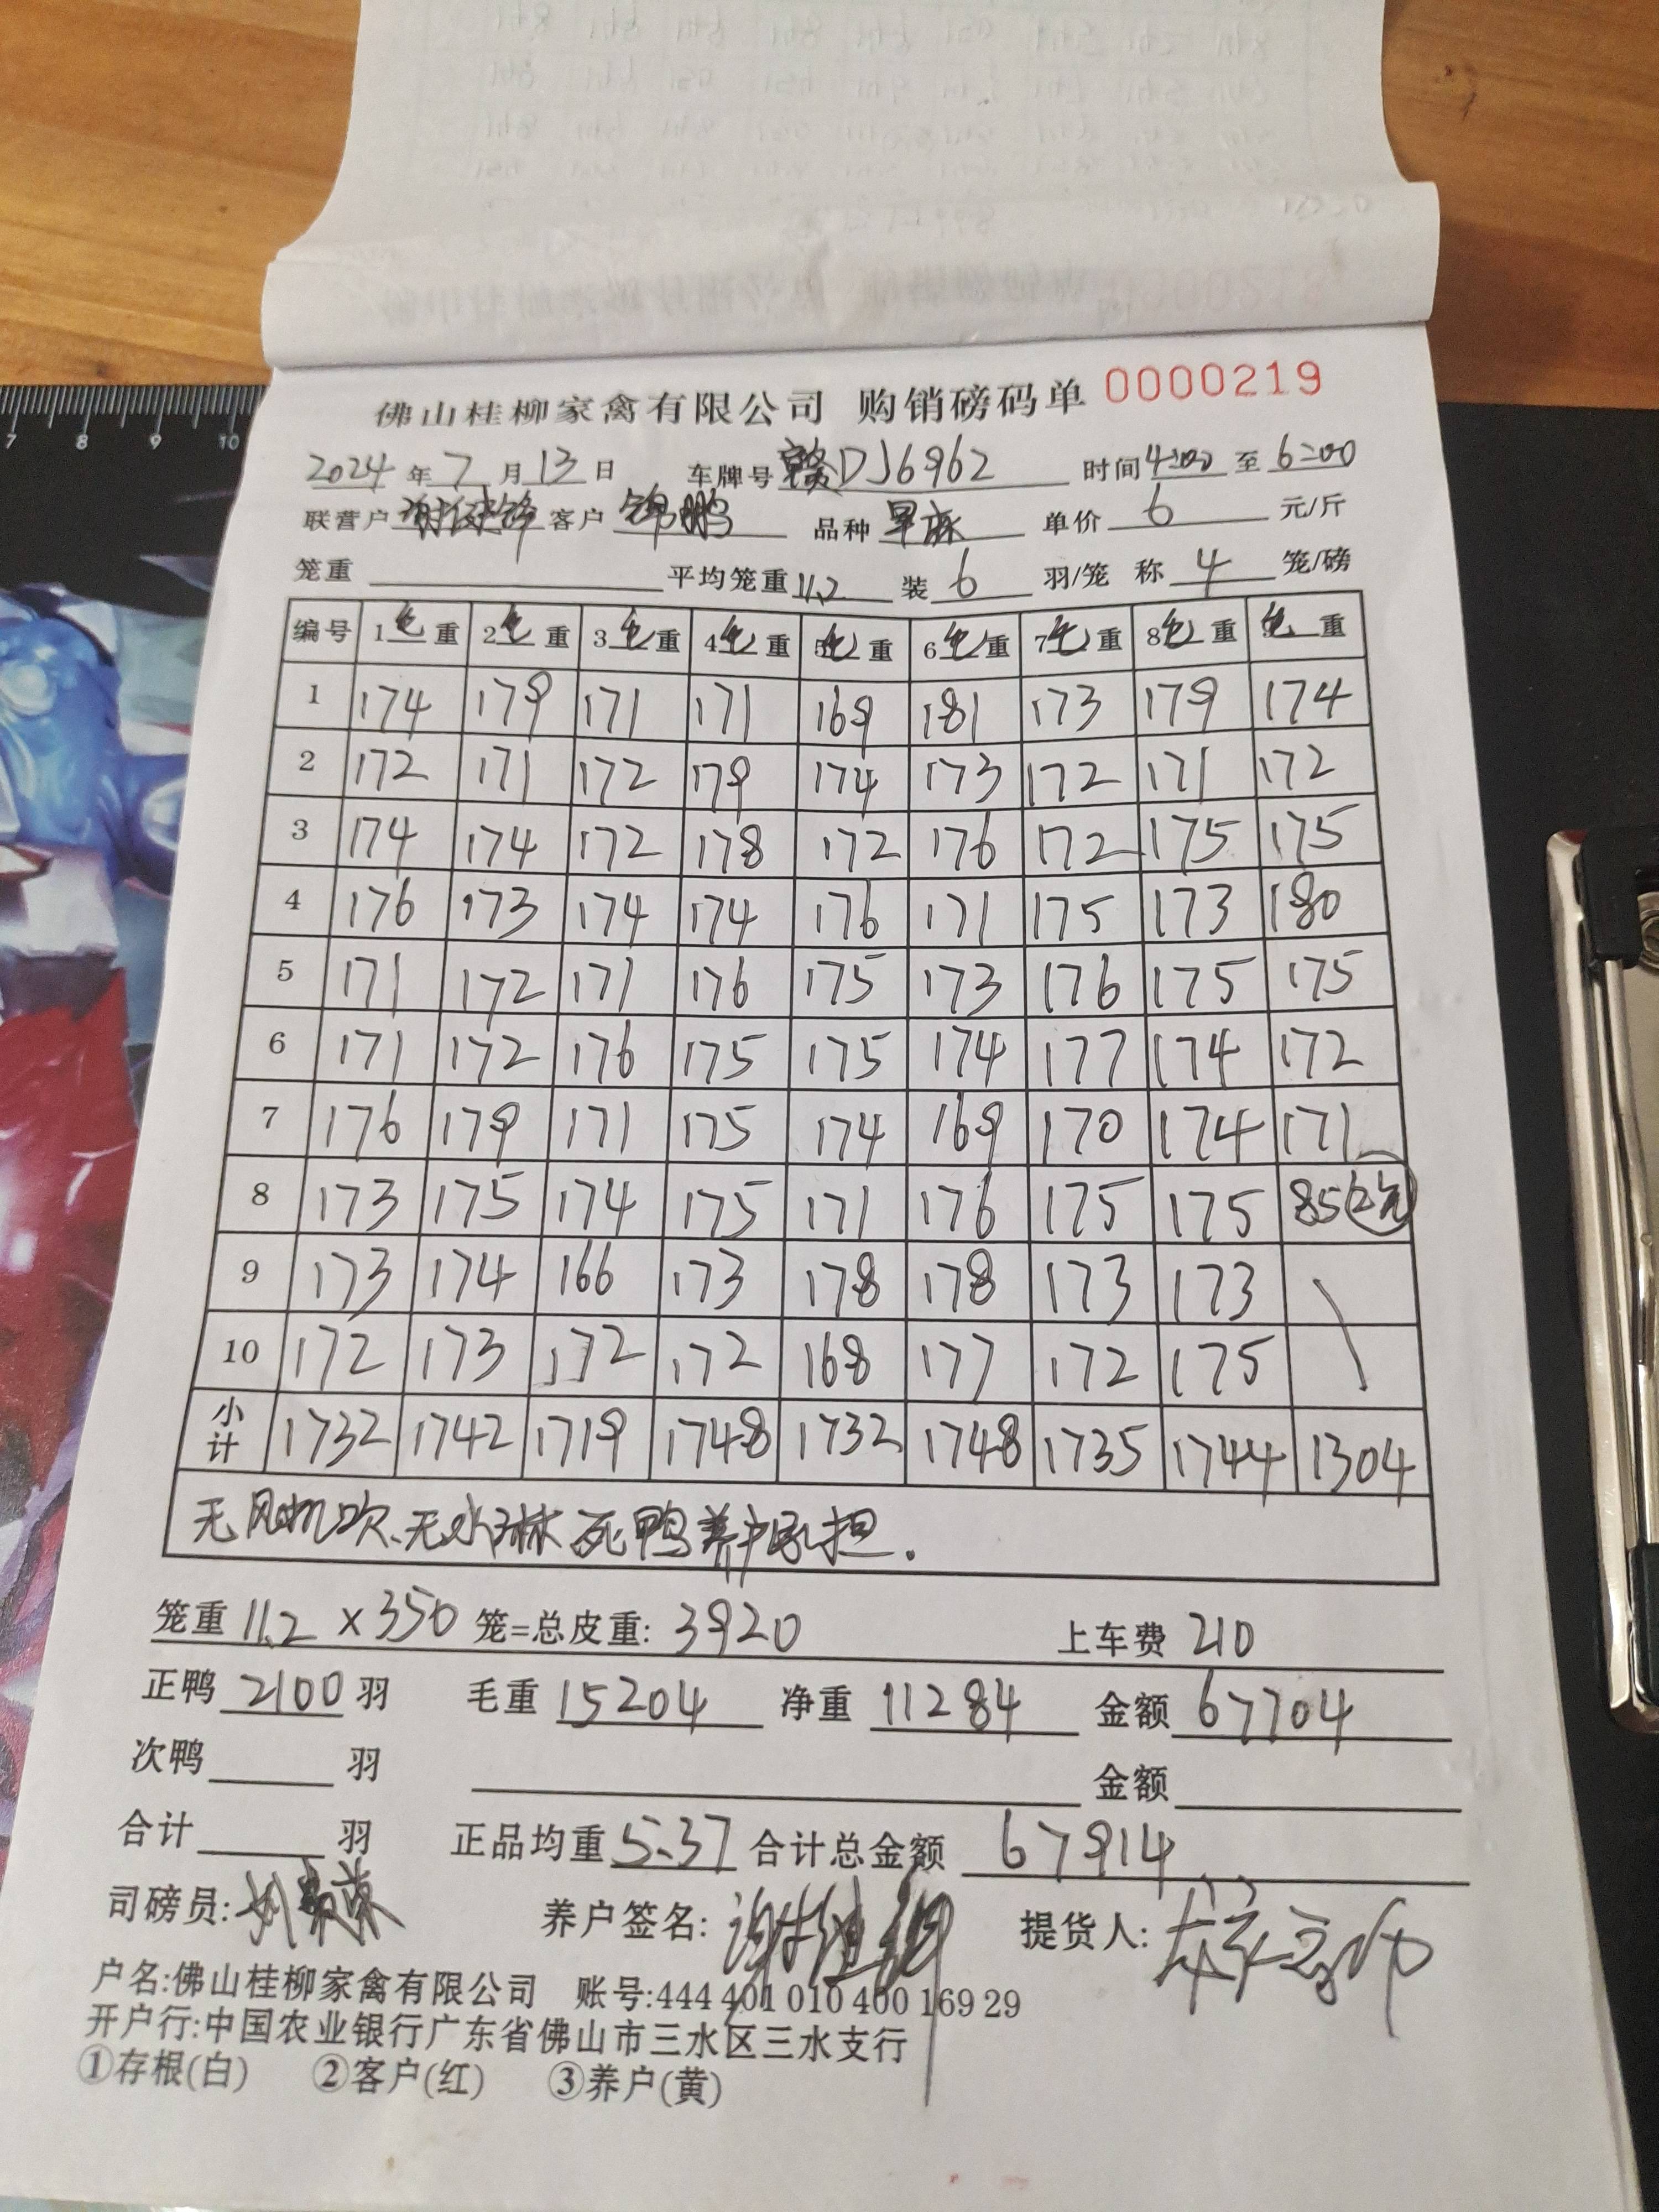 佛山桂柳家禽有限公司 购销磅码单 0000219
2024 年 7 月 13 日 车牌号 赣DJ6962 时间 4:00 至 6:00
联营户 客户 锦鹏 品种 早麻 单价 6 元/斤
笼重 平均笼重 11.2 装 6 羽/笼 称 4 笼/磅
编号 1 毛 重 2 毛 重 3 毛 重 4 毛 重 5 毛 重 6 毛 重 7 毛 重 8 毛 重 毛 重
1 174 179 171 171 169 181 173 179 174
2 172 171 172 179 174 173 172 171 172
3 174 174 172 178 172 176 172 175 175
4 176 173 174 174 176 171 175 173 180
5 171 172 171 176 175 173 176 175 175
6 171 172 176 175 175 174 177 174 172
7 176 179 171 175 174 169 170 174 171
8 173 175 174 175 171 176 175 175 85
9 173 174 166 173 178 178 173 173
10 172 173 172 172 168 177 172 175
小计 1732 1742 1719 1748 1732 1748 1735 1744 1304
无风机吹、无水淋死鸭养户承担.
笼重 11.2 x 350 笼=总皮重: 3920 上车费 210
正鸭 2100 羽 毛重 15204 净重 11284 金额 67704
次鸭 羽 金额
合计 羽 正品均重 5.37 合计总金额 67914
司磅员: 养户签名: 提货人:
户名:佛山桂柳家禽有限公司 账号:444 401 010 400 169 29
开户行:中国农业银行广东省佛山市三水区三水支行
①存根(白) ②客户(红) ③养户(黄)
7 8 9 10